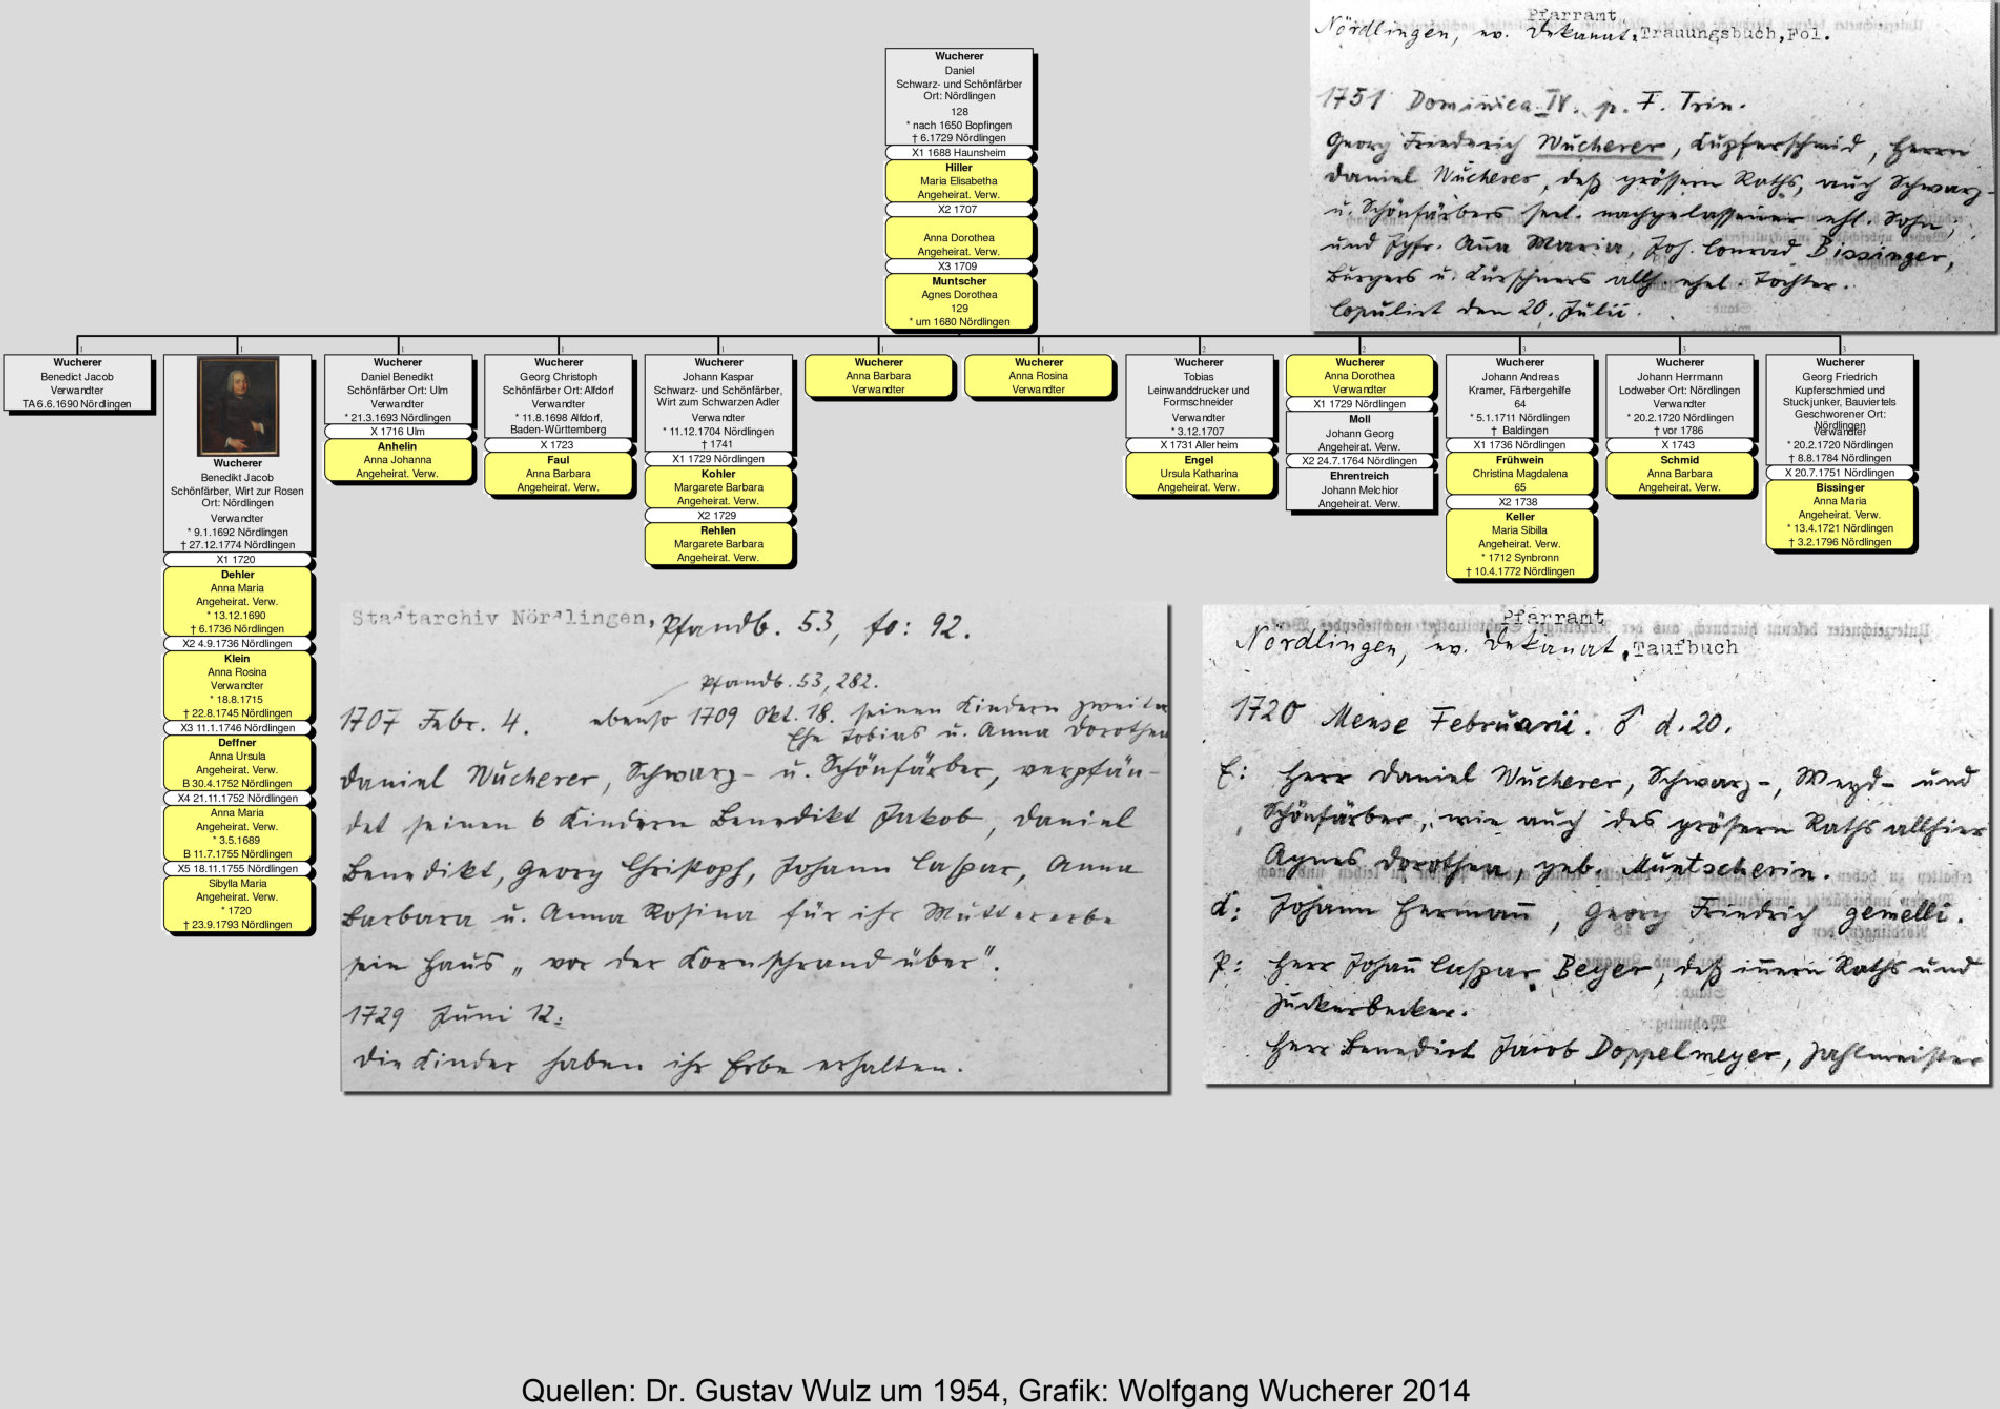 Wucherer
Daniel
Schwarz- und Schönfärber
Ort: Nördlingen
128
* nach 1650 Bopfingen
† 6.1729 Nördlingen
X1 1688 Haunsheim
Hiller
Maria Elisabetha
Angeheirat. Verw.
X2 1707
Anna Dorothea
Angeheirat. Verw.
X3 1709
Muntscher
Agnes Dorothea
129
* um 1680 Nördlingen
Pfarramt
Nördlingen, ev. Dekanat, Trauungsbuch, Fol.
1751 Dominica IV. p. F. Trin.
Georg Friederich Wucherer, Kupferschmid, Herrn
Daniel Wucherer, deß grössern Raths, auch Schwarz-
u. Schönfärbers seel. nachgelassener ehl. Sohn,
und Jgfr. Anna Maria, Joh. Conrad Bissinger,
Burgers u. Kürschners allh. ehel. Tochter.
Copuliert den 20. Julii.
1
Wucherer
Benedict Jacob
Verwandter
TA 6.6.1690 Nördlingen
1
Wucherer
Benedikt Jacob
Schönfärber, Wirt zur Rosen
Ort: Nördlingen
Verwandter
* 9.1.1692 Nördlingen
† 27.12.1774 Nördlingen
X1 1720
Dehler
Anna Maria
Angeheirat. Verw.
* 13.12.1690
† 6.1736 Nördlingen
X2 4.9.1736 Nördlingen
Klein
Anna Rosina
Verwandter
* 18.8.1715
† 22.8.1745 Nördlingen
X3 11.1.1746 Nördlingen
Deffner
Anna Ursula
Angeheirat. Verw.
B 30.4.1752 Nördlingen
X4 21.11.1752 Nördlingen
Anna Maria
Angeheirat. Verw.
* 3.5.1689
B 11.7.1755 Nördlingen
X5 18.11.1755 Nördlingen
Sibylla Maria
Angeheirat. Verw.
* 1720
† 23.9.1793 Nördlingen
1
Wucherer
Daniel Benedikt
Schönfärber Ort: Ulm
Verwandter
* 21.3.1693 Nördlingen
X 1716 Ulm
Anhelin
Anna Johanna
Angeheirat. Verw.
1
Wucherer
Georg Christoph
Schönfärber Ort: Alfdorf
Verwandter
* 11.8.1698 Alfdorf,
Baden-Württemberg
X 1723
Faul
Anna Barbara
Angeheirat. Verw.
1
Wucherer
Johann Kaspar
Schwarz- und Schönfärber,
Wirt zum Schwarzen Adler
Verwandter
* 11.12.1704 Nördlingen
† 1741
X1 1729 Nördlingen
Kohler
Margarete Barbara
Angeheirat. Verw.
X2 1729
Rehlen
Margarete Barbara
Angeheirat. Verw.
1
Wucherer
Anna Barbara
Verwandter
1
Wucherer
Anna Rosina
Verwandter
2
Wucherer
Tobias
Leinwanddrucker und
Formschneider
Verwandter
* 3.12.1707
X 1731 Allerheim
Engel
Ursula Katharina
Angeheirat. Verw.
2
Wucherer
Anna Dorothea
Verwandter
X1 1729 Nördlingen
Moll
Johann Georg
Angeheirat. Verw.
X2 24.7.1764 Nördlingen
Ehrentreich
Johann Melchior
Angeheirat. Verw.
3
Wucherer
Johann Andreas
Kramer, Färbergehilfe
64
* 5.1.1711 Nördlingen
† Baldingen
X1 1736 Nördlingen
Frühwein
Christina Magdalena
65
X2 1738
Keller
Maria Sibilla
Angeheirat. Verw.
* 1712 Synbronn
† 10.4.1772 Nördlingen
3
Wucherer
Johann Herrmann
Lodweber Ort: Nördlingen
Verwandter
* 20.2.1720 Nördlingen
† vor 1786
X 1743
Schmid
Anna Barbara
Angeheirat. Verw.
3
Wucherer
Georg Friedrich
Kupferschmied und
Stuckjunker, Bauviertels
Geschworener Ort:
Nördlingen
Verwandter
* 20.2.1720 Nördlingen
† 8.8.1784 Nördlingen
X 20.7.1751 Nördlingen
Bissinger
Anna Maria
Angeheirat. Verw.
* 13.4.1721 Nördlingen
† 3.2.1796 Nördlingen
Stadtarchiv Nördlingen, Pfandb. 53, fo: 92.
Pfandb. 53, 282.
1707 Febr. 4. ebenso 1709 Okt. 18. seinen Kindern zweiter
Ehe Tobias u. Anna Dorothea
Daniel Wucherer, Schwarz- u. Schönfärber, verpfän-
det seinen 6 Kindern Benedikt Jakob, Daniel
Benedikt, Georg Christoph, Johann Caspar, Anna
Barbara u. Anna Rosina für ihr Muttererbe
sein Haus „vor der Kornschrand über".
1729 Juni 12:
Die Kinder haben ihr Erbe erhalten.
Pfarramt
Nördlingen, ev. Dekanat, Taufbuch
1720 Mense Februarii: ♂ d. 20.
E: Herr Daniel Wucherer, Schwarz-, Weyd- und
Schönfärber, wie auch des grösern Raths allhier
Agnes Dorothea, geb. Muntscherin.
K: Johann Hermann, Georg Friedrich gemelli.
P: Herr Johann Caspar Beyer, deß innern Raths und
Zuckerbecker.
Herr Benedict Jacob Doppelmeyer, Zahlmeister
Quellen: Dr. Gustav Wulz um 1954, Grafik: Wolfgang Wucherer 2014